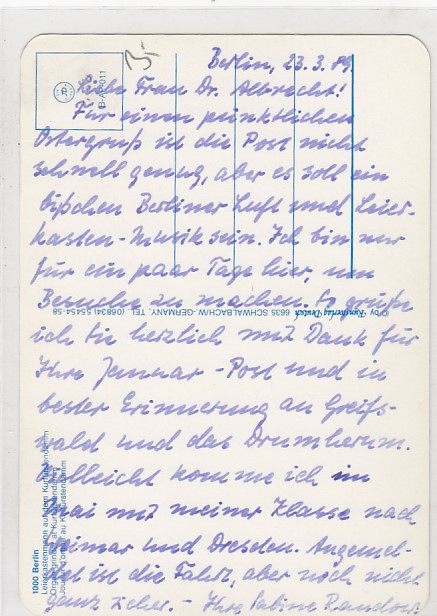 3,-
Berlin, 23.3.89.
Liebe Frau Dr. Albrecht!
Für einen pünktlichen
Ostergruß ist die Post nicht
schnell genug, aber es soll ein
bißchen Berliner Luft und Leier-
kasten-Musik sein. Ich bin nur
für ein paar Tage hier, um
Besuche zu machen. So grüße
ich Sie herzlich mit Dank für
Ihre Januar-Post und in
bester Erinnerung an Greifs-
wald und das Drumherum.
Vielleicht komme ich im
Mai mit meiner Klasse nach
Weimar und Dresden. Angemel-
det ist die Fahrt, aber noch nicht
ganz sicher. - Ihre Sabine
© by Kunstverlag Deutsch 6635 SCHWALBACH/W.-GERMANY, TEL. (06834) 55454-58
1000 Berlin
Leierkastenmann auf dem Kurfürstendamm